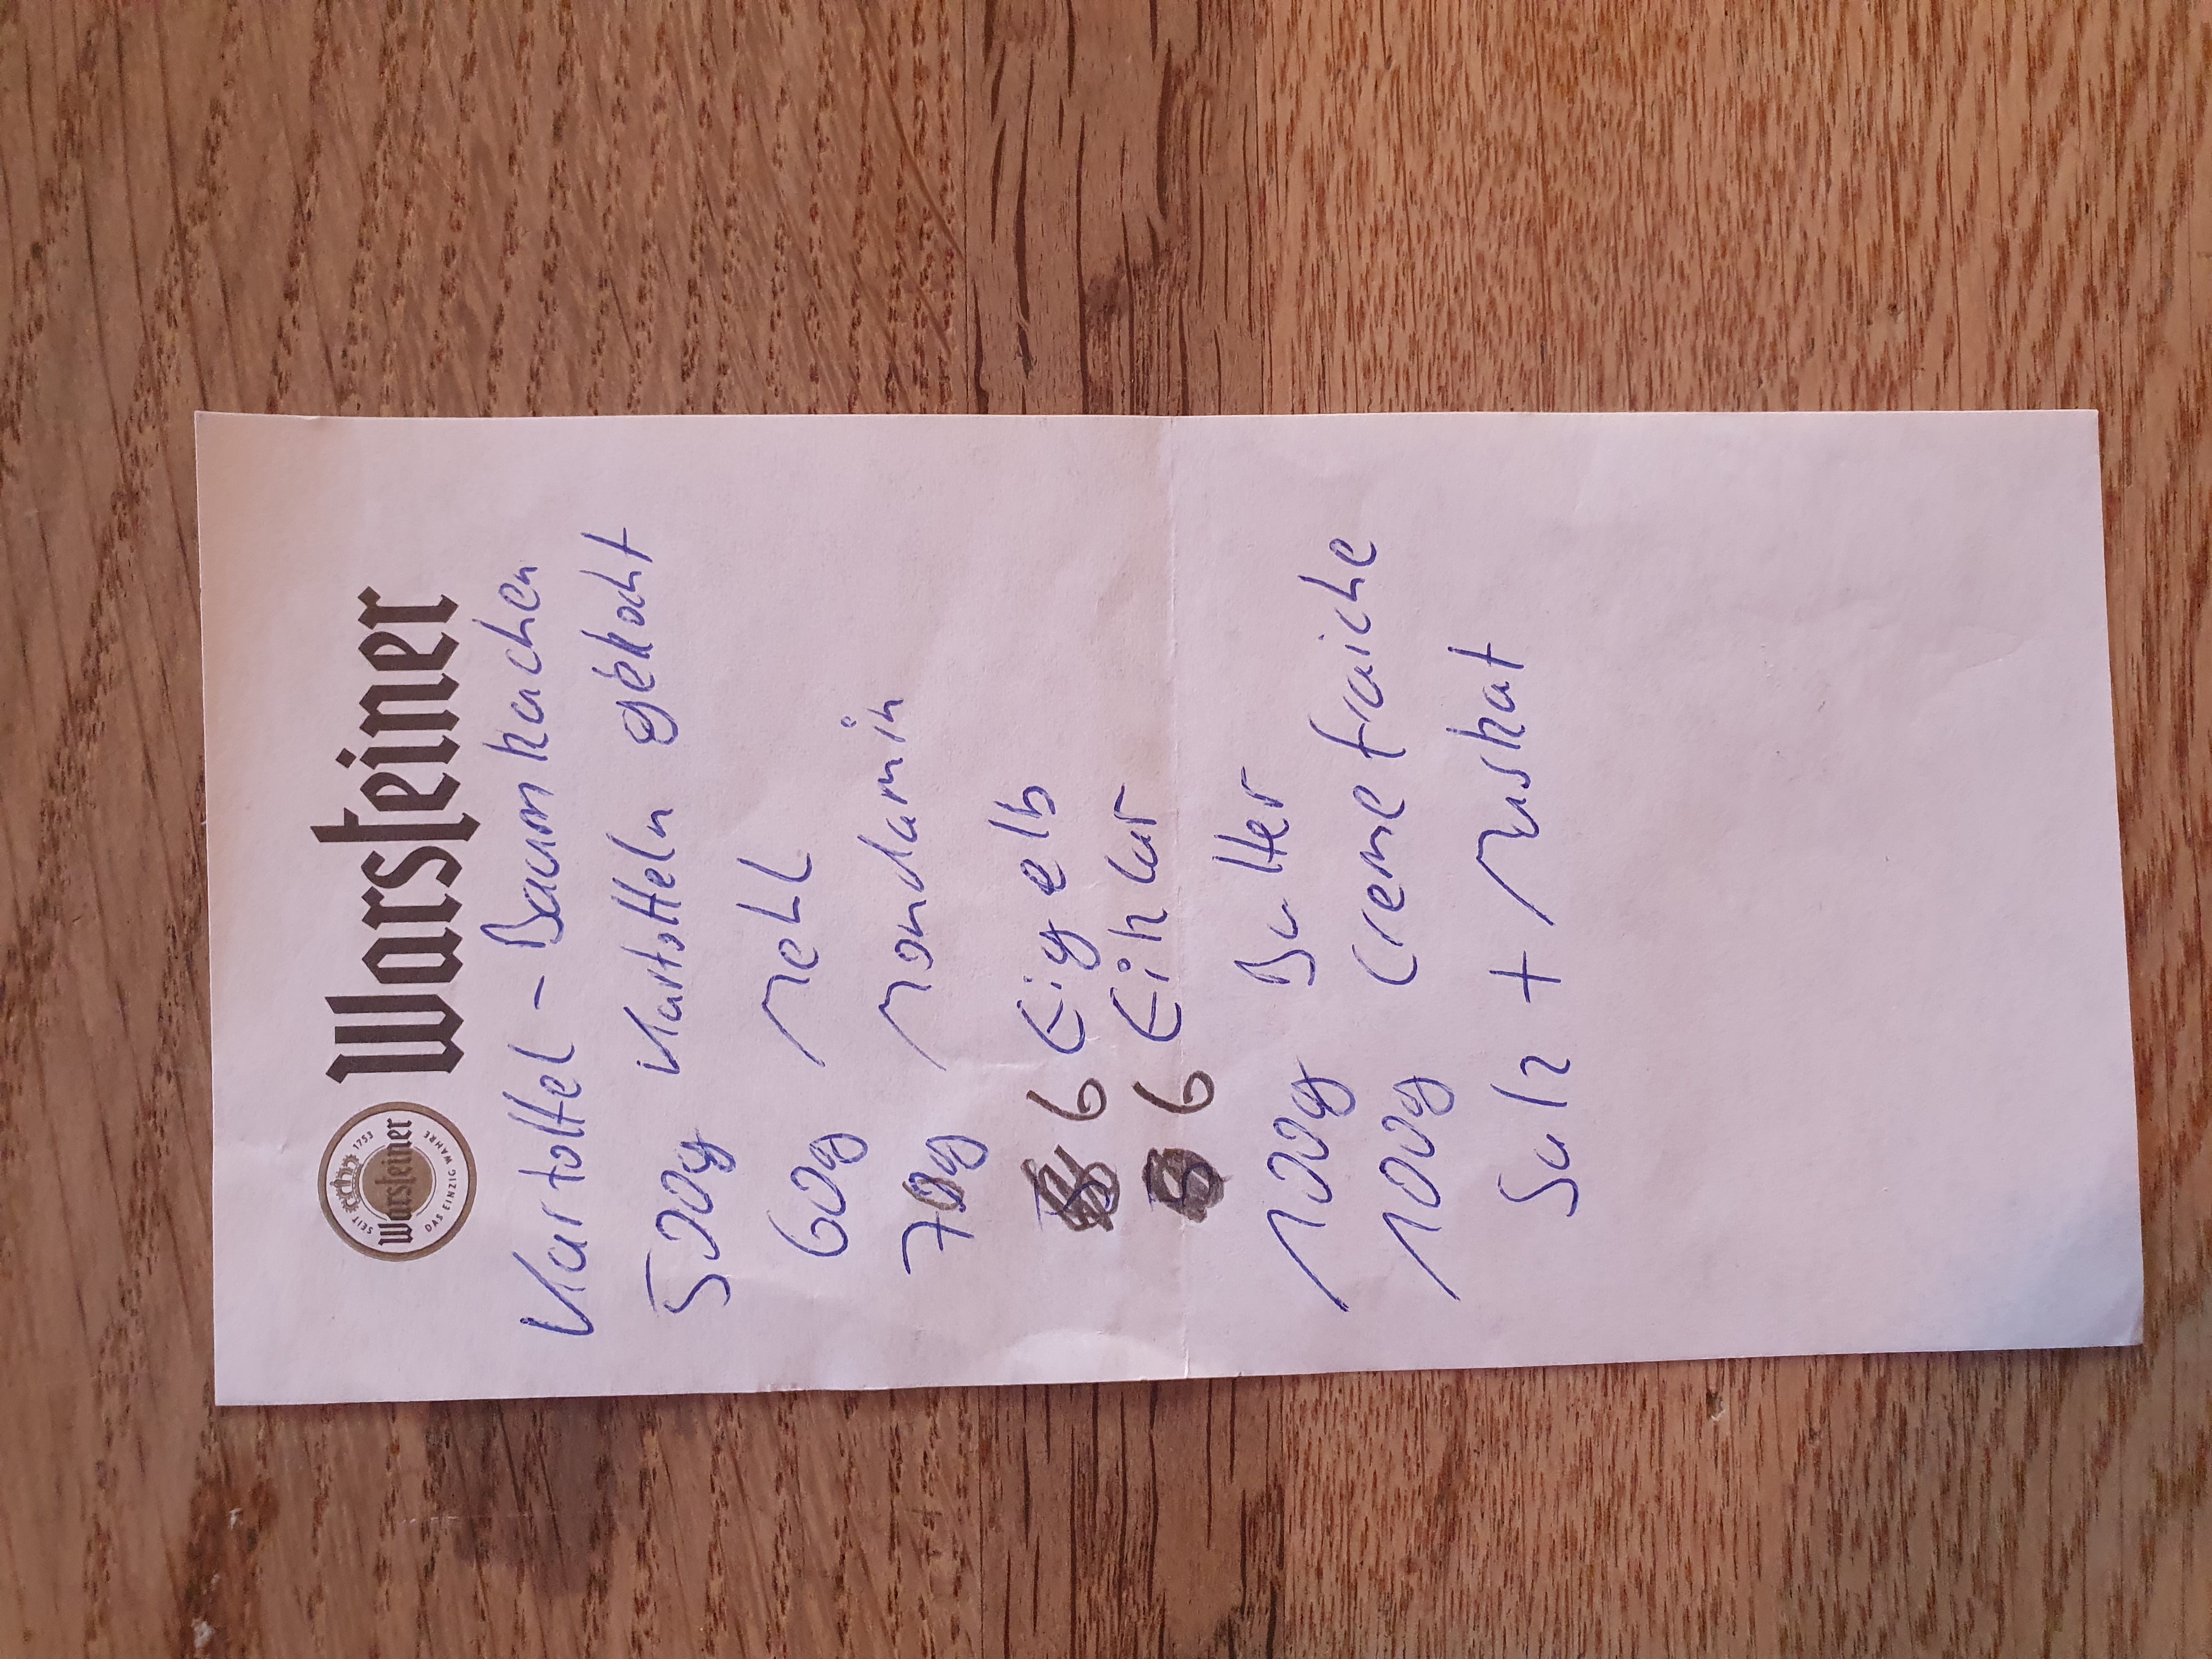 SEIT 1753
Warsteiner
DAS EINZIG WAHRE
Warsteiner
Kartoffel - Baumkuchen
500g Kartoffeln gekocht
60g Mehl
70g Mondamin
6 Eigelb
6 Eiklar
100g Butter
100g Creme fraiche
Salz + Muskat